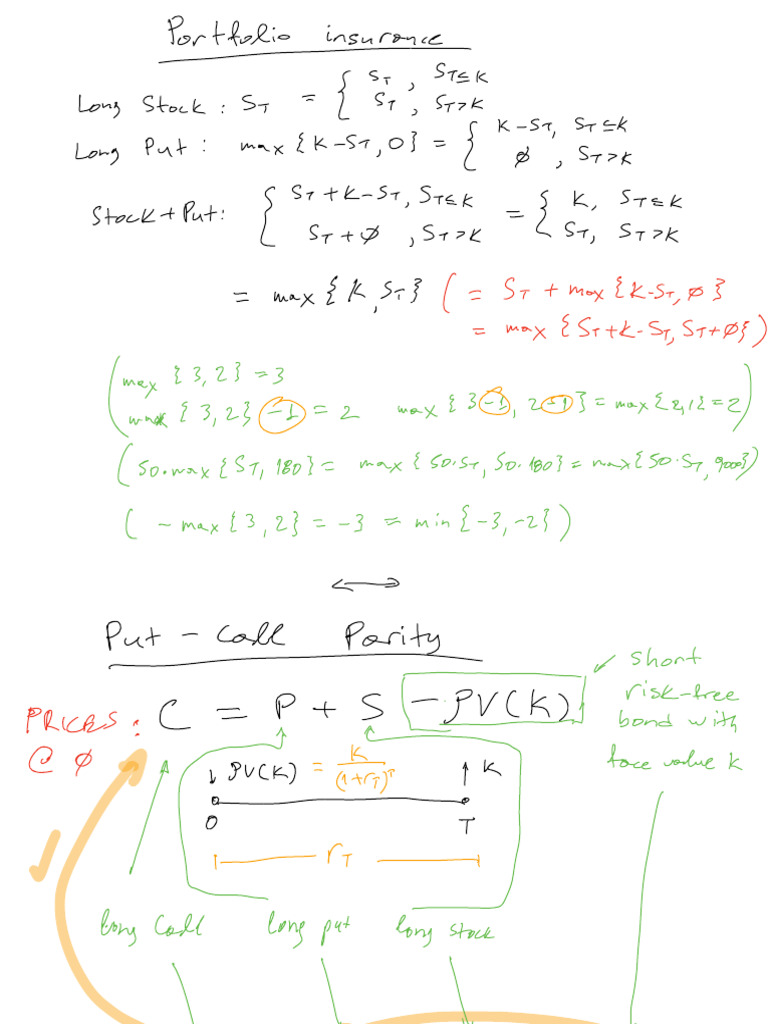 Portfolio insurance
Long Stock: S_T = { S_T, S_T≤K
S_T, S_T>K
Long Put: max{K-S_T, 0} = { K-S_T, S_T≤K
∅, S_T>K
Stock+Put: { S_T+K-S_T, S_T≤K = { K, S_T≤K
S_T+∅, S_T>K S_T, S_T>K
= max{K, S_T} (= S_T + max{K-S_T, ∅}
= max{S_T+K-S_T, S_T+∅})
(max{3,2} = 3
max{3,2} -1 = 2 max{3-1, 2-1} = max{2,1} = 2)
(50·max{S_T, 180} = max{50·S_T, 50·180} = max{50·S_T, 9000})
(-max{3,2} = -3 = min{-3,-2})
↔
Put-Call Parity
short
risk-free
bond with
face value K
PRICES: C = P + S -PV(K)
@ ∅
↓ PV(K) = K/(1+r_T)^T ↑ K
0 T
r_T
long call long put long stock